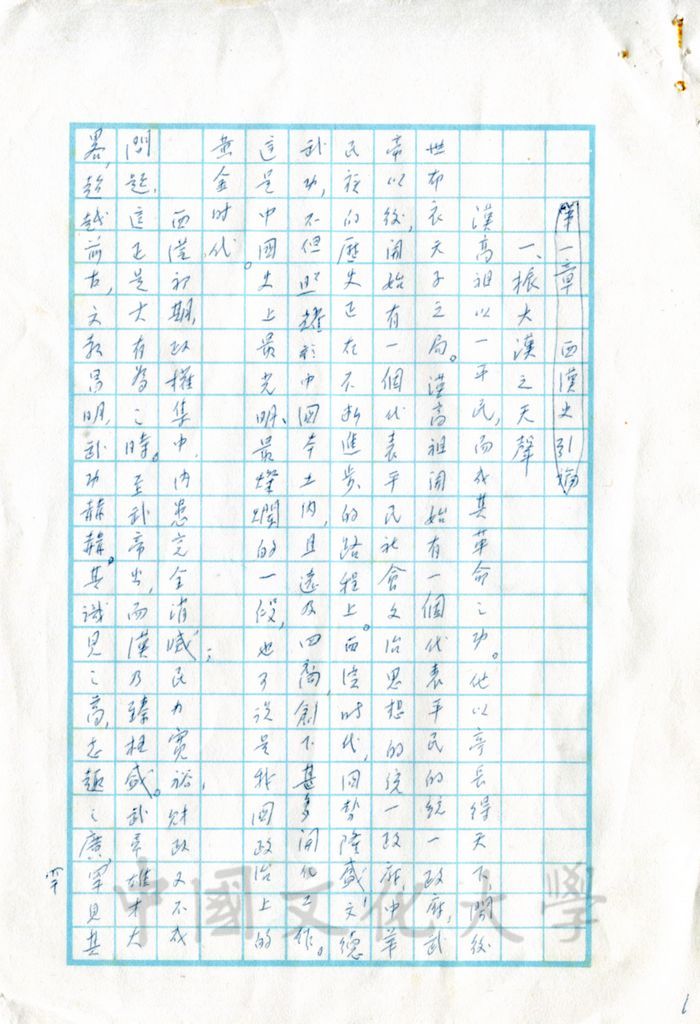 第一章　西漢史引論
一、振大漢之天聲
漢高祖以一平民，而成其革命之功。他以亭長得天下，開後
世布衣天子之局。漢高祖開始有一個代表平民的統一政府，武
帝以後，開始有一個代表平民社會文治思想的統一政府，中華
民族的歷史正在不斷進步的路程上。西漢时代，国势隆盛，文德
武功，不但照耀於中國本土内，且遠及四裔，創下甚多開化工作。
這是中國史上最光明、最燦爛的一段，也可说是我国政治上的
黄金时代。
西漢初期，政權集中，内患完全消滅；民力寬裕，财政又不成
問題，這正是大有為之時。至武帝出，而漢乃臻極盛。武帝雄才大
畧，超越前古，文教昌明，武功赫赫。其識見之高，志趣之廣，罕見其
罕
1
中國文化大學